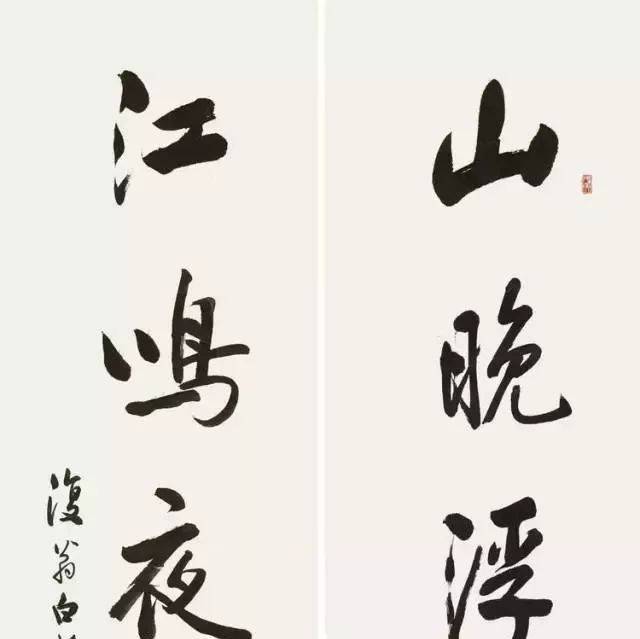 山晚浮
江鳴夜
復翁白